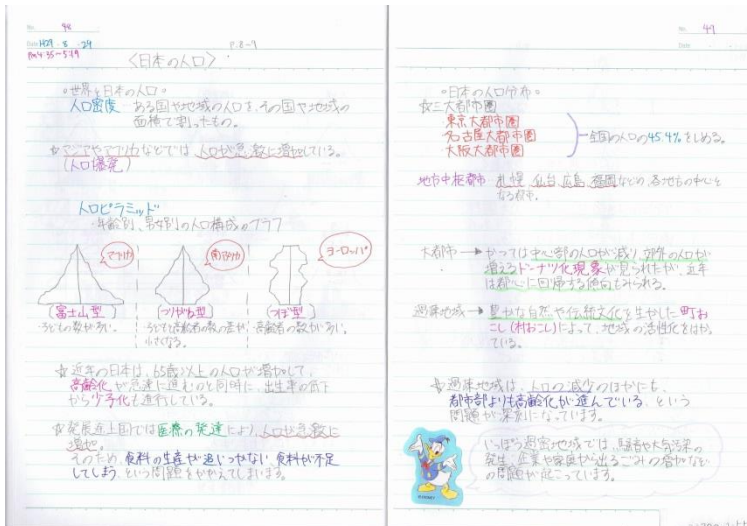 No. 48
Date H29・8・29
P.8-9
〈日本の人口〉
・世界と日本の人口・
人口密度…ある国や地域の人口を、その国や地域の
面積で割ったもの。
☆アジアやアフリカなどでは、人口が急激に増加している。
(人口爆発)
人口ピラミッド
・年齢別、男女別の人口構成のグラフ
アフリカ
南アメリカ
ヨーロッパ
[富士山型]
[つりがね型]
[つぼ型]
・子どもの数が多い。
・子どもと高齢者の数の差が
小さくなる。
・高齢者の数が多い。
☆近年の日本は、65歳以上の人口が増加して、
高齢化が急速に進むのと同時に、出生率の低下
から少子化も進行している。
☆発展途上国では医療の発達により、人口が急激に
増加。
そのため、食料の生産が追いつかない、食料が不足
してしまう、という問題をかかえてしまいます。
No. 49
Date
・日本の人口分布・
☆三大都市圏
東京大都市圏
名古屋大都市圏
大阪大都市圏
全国の人口の45.4%をしめる。
地方中枢都市…札幌、仙台、広島、福岡などの、各地方の中心と
なる都市。
大都市→かつては中心部の人口が減り、郊外の人口が
増えるドーナツ化現象が見られたが、近年
は都心に回帰する傾向もみられる。
過疎地域→豊かな自然や伝統文化を生かした町お
こし(村おこし)によって、地域の活性化をはかっ
ている。
☆過疎地域は、人口の減少のほかにも、
都市部よりも高齢化が進んでいる、という
問題が深刻になっています。
いっぽう過密地域では、騒音や大気汚染の
発生、企業や家庭から出るごみの増加など
の問題が起こっています。